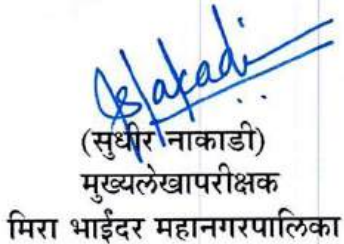 (सुधीर नाकाडी)
मुख्यलेखापरीक्षक
मिरा भाईंदर महानगरपालिका